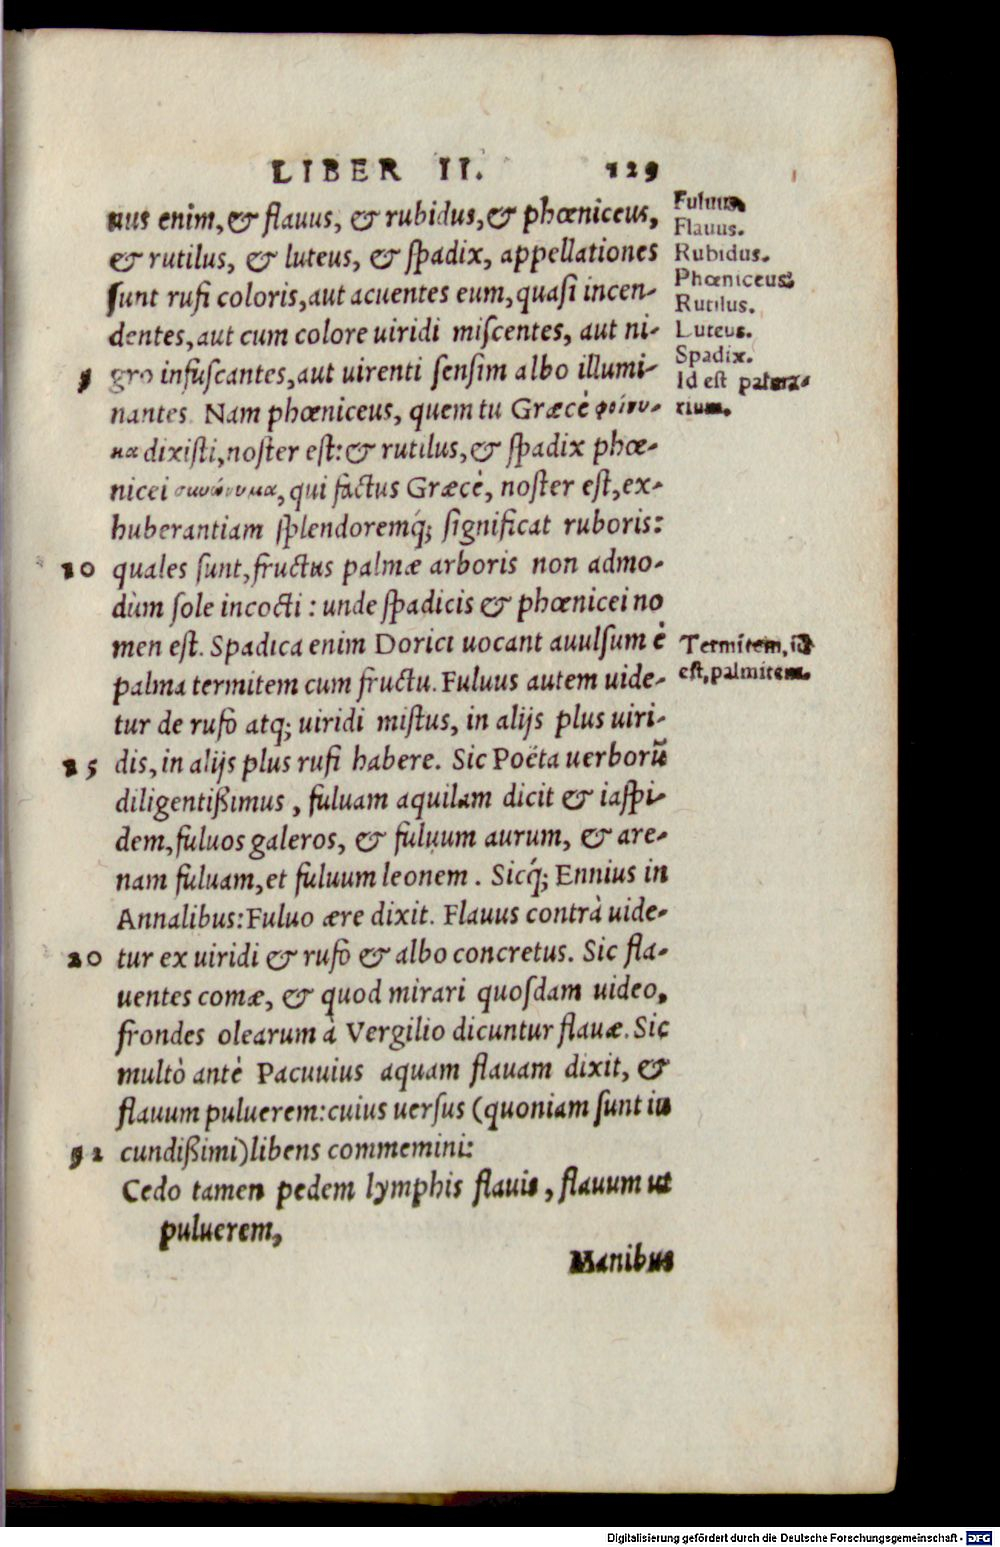 LIBER II. 129
uus enim, & flauus, & rubidus, & phœniceus,
& rutilus, & luteus, & ſpadix, appellationes
ſunt rufi coloris, aut acuentes eum, quaſi incen-
dentes, aut cum colore uiridi miſcentes, aut ni-
5 gro infuſcantes, aut uirenti ſenſim albo illumi-
nantes. Nam phœniceus, quem tu Græcè φοίνι-
κα dixiſti, noſter eſt: & rutilus, & ſpadix phœ-
nicei συνώνυμα, qui factus Græcè, noſter eſt, ex-
huberantiam ſplendoremq́; ſignificat ruboris:
10 quales ſunt, fructus palmæ arboris non admo-
dùm ſole incocti: unde ſpadicis & phœnicei no
men eſt. Spadica enim Dorici uocant auulſum è
palma termitem cum fructu. Fuluus autem uide-
tur de rufo atq; uiridi miſtus, in alijs plus uiri-
15 dis, in alijs plus rufi habere. Sic Poëta uerborũ
diligentißimus, fuluam aquilam dicit & iaſpi-
dem, fuluos galeros, & fuluum aurum, & are-
nam fuluam, et fuluum leonem. Sicq́; Ennius in
Annalibus: Fuluo ære dixit. Flauus contrà uide-
20 tur ex uiridi & rufo & albo concretus. Sic fla-
uentes comæ, & quod mirari quoſdam uideo,
frondes olearum à Vergilio dicuntur flauæ. Sic
multò antè Pacuuius aquam flauam dixit, &
flauum puluerem: cuius uerſus (quoniam ſunt iu
52 cundißimi) libens commemini:
Cedo tamen pedem lymphis flauis, flauum ut
puluerem,
Manibus
Fuluus.
Flauus.
Rubidus.
Phœniceus.
Rutilus.
Luteus.
Spadix.
Id eſt palma-
rium.
Termitem, id
eſt, palmitem.
Digitalisierung gefördert durch die Deutsche Forschungsgemeinschaft - DFG